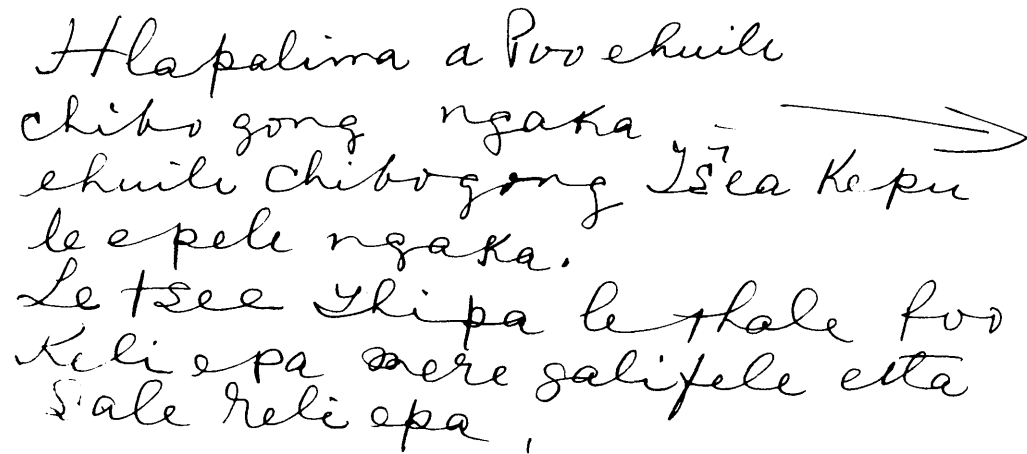 Hlapalima a Poo ehuile
chibogong ngaka
ehuile chibogong Išea Kepu
le epele ngaka.
Le tsee thipa le thale poo
Keli epa mere galifele etta
Sale reli epa,